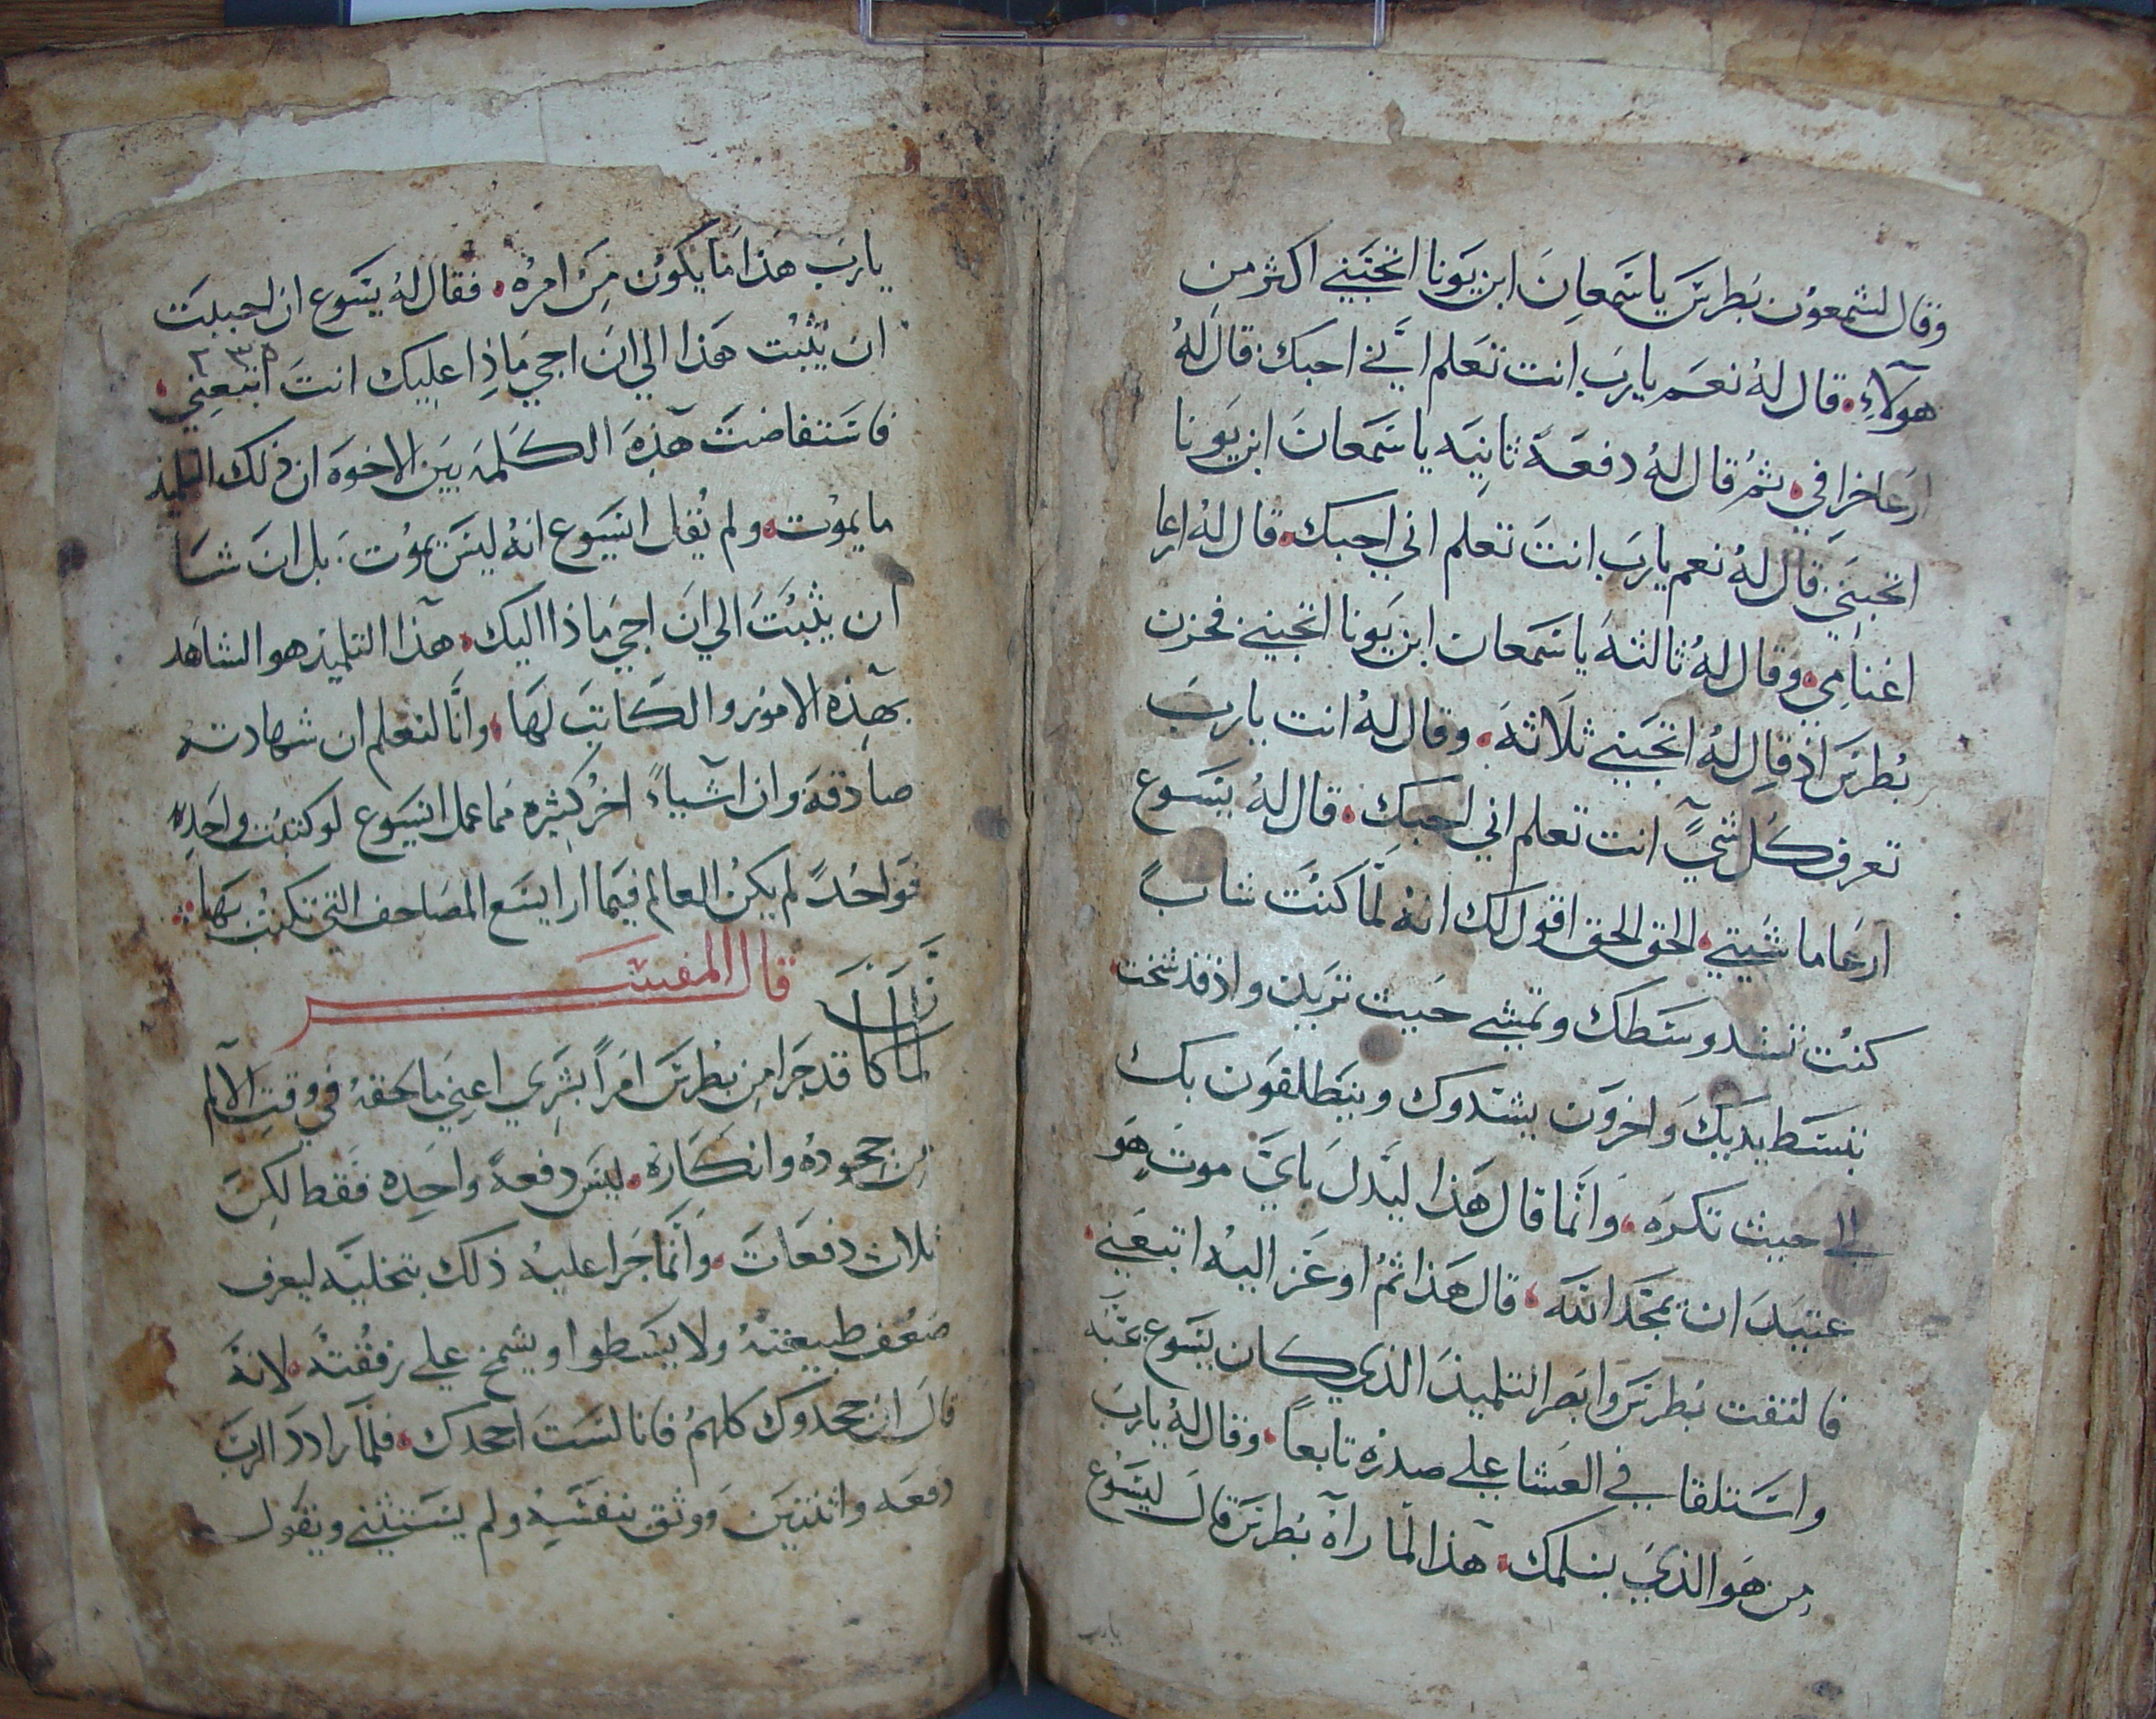 وقال لشمعون بطرس يا سمعان ابن يونا اتحبني اكثر من
هولآء. قال له نعم يارب انت تعلم انني احبك: قال له
ارعا خرافي. ثم قال له دفعة ثانيه يا سمعان ابن يونا
اتحبني قال له نعم يارب انت تعلم اني احبك. قال له ارعا
اغنامي. وقال له ثالثة يا سمعان ابن يونا اتحبني فحزن
بطرس اذ قال له اتحبني ثلاثة. وقال له انت يارب
تعرف كل شيً انت تعلم اني احبك. قال له يسوع
ارعا ماشيتي. الحق الحق اقول لك انه لما كنت شابً
كنت تشد وسطك وتمشي حيث تريد واذ قد شخت.
تبسط يديك واخرون يشدوك وينطلقون بك
الي حيث تكره. وانما قال هذا ليدل باي موت هو
عتيد ان يمجد الله. قال هذا ثم اوعز اليه اتبعني.
فالتفت بطرس وابصر التلميذ الذي كان يسوع يحبه
واستلقا في العشا علي صدره تابعاً. وقال له يارب
من هو الذي يسلمك. هذا لما رآه بطرس قال ليسوع
يارب
يارب هذا ما يكون من امره. فقال له يسوع ان احببت
ان يثبت هذا الي ان اجي ماذا عليك انت اتبعني.
٢٣٥
فاستفاضت هذه الكلمه بين الاخوه ان ذلك التلميذ
ما يموت. ولم يقل ايسوع انه ليس يموت: بل ان شا
ان يثبت الي ان اجي ماذا اليك. هذا التلميذ هو الشاهد
بهذه الامور والكاتب لها. وانا لنعلم ان شهادته
صادقة وان اشياءً اخر كثيره مما عمل ايسوع لو كتبت واحده
فواحدً لم يكن العالم فيما ارا يسع المصاحف التي تكتب بها
قال المفسر
لما كا قد جرا من بطرس امراً بشري اعني ما لحقه في وقت الآلم
من جحوده وانكاره. ليس دفعة واحده فقط لكن
ثلاث دفعات. وانما جرا عليه ذلك بتخليه ليعرف
ضعف طبيعته ولا يسطوا ويشمخ علي رفقته. لانه
قال ان جحدوك كلهم فانا لست اجحدك. فلما رادد الرب
دفعه واثنتين ووثق بنفسه ولم يستثني ويقول